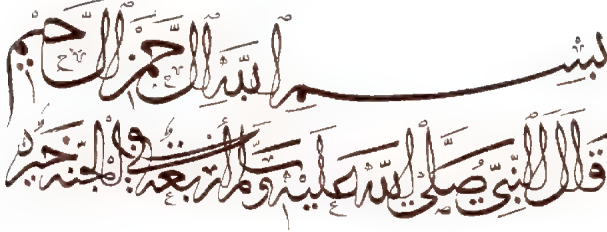 بسم الله الرحمن الرحيم
قال النبي صلى الله عليه وسلم أربعة في الجنة خير